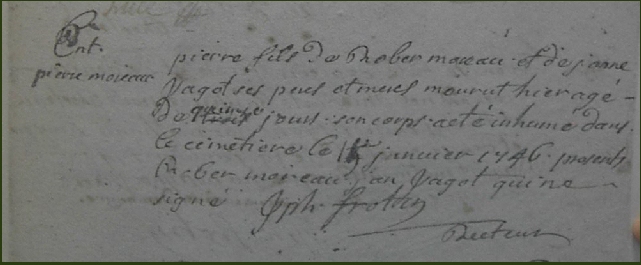 Ent.
pierre moreau
pierre fils De Rober moreau et de janne
Jagot ses pere et meres mourut hier agé
De quinse jours son corps a eté inhumé dans
le cimetiere le janvier 1746 presents
Rober moreau jan Jagot qui ne
signe Jph frottin
Recteur